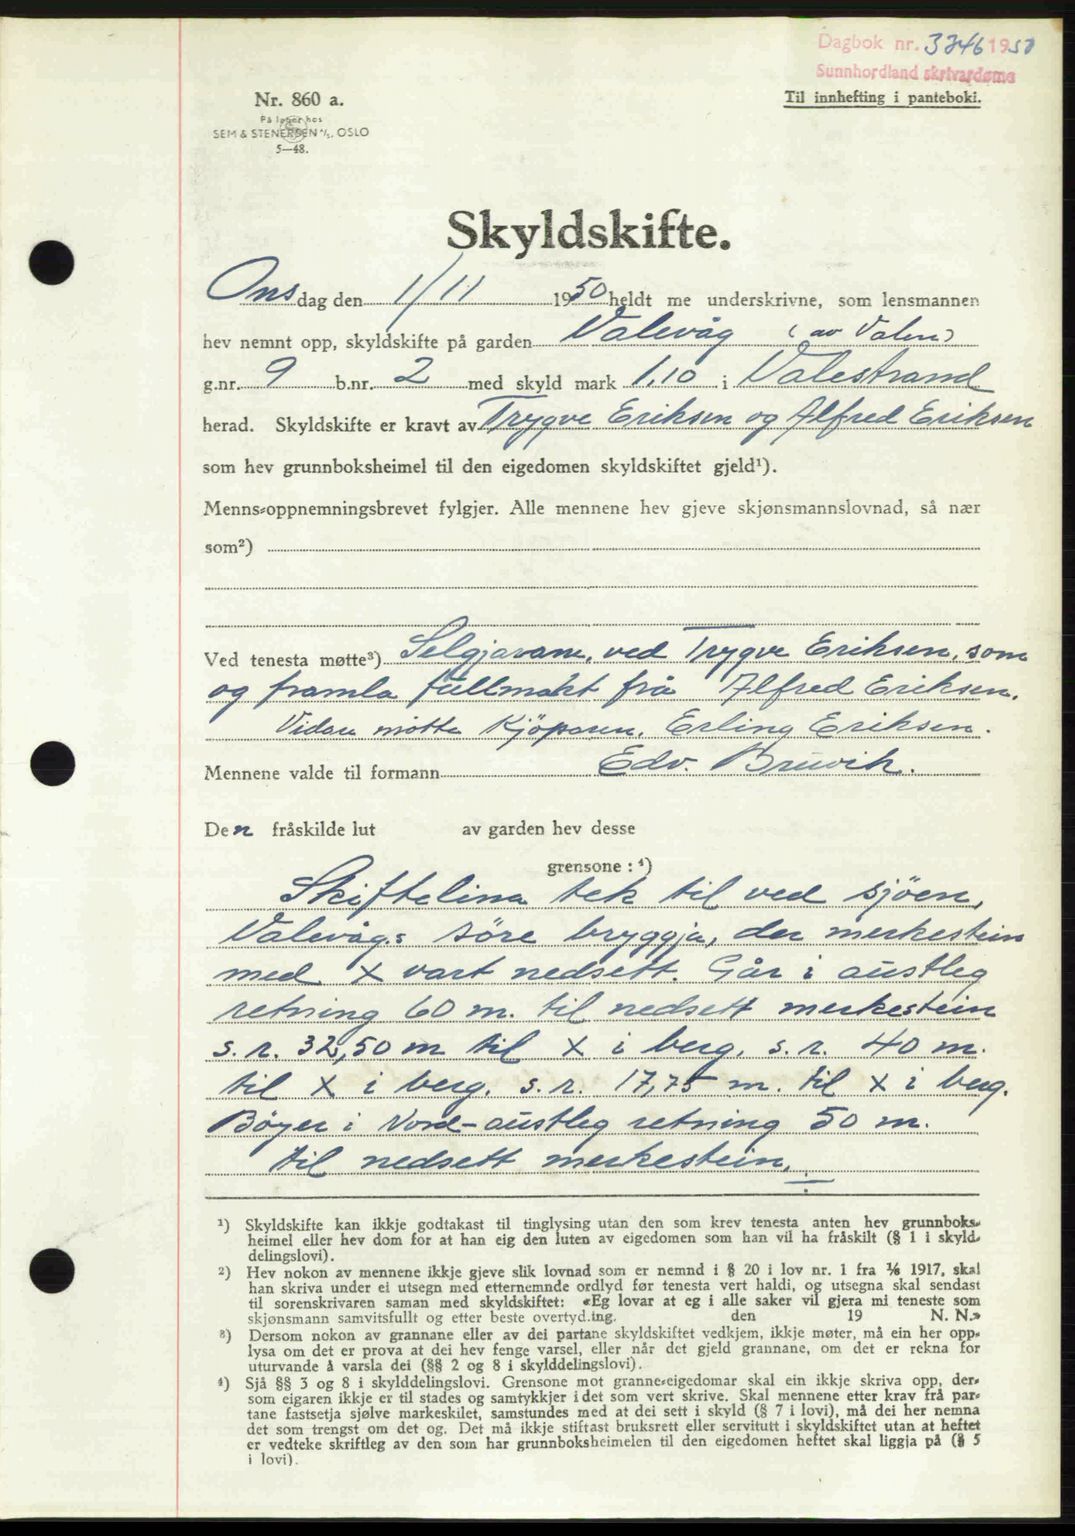 Dagbok nr. 3346 1950
Sunnhordland skrivardøme
Nr. 860 a.
På lager hos
SEM & STENERSEN A/S, OSLO
5—48.
Til innhefting i panteboki.
Skyldskifte.
Onsdag den 1/11 1950 heldt me underskrivne, som lensmannen
hev nemnt opp, skyldskifte på garden Valevåg (av Valen)
g.nr. 9 b.nr. 2 med skyld mark 1,10 i Valestrand
herad. Skyldskifte er kravt av Trygve Eriksen og Alfred Eriksen
som hev grunnboksheimel til den eigedomen skyldskiftet gjeld¹).
Menns-oppnemningsbrevet fylgjer. Alle mennene hev gjeve skjønsmannslovnad, så nær
som²)
Ved tenesta møtte³) Selgjarane, ved Trygve Eriksen, som
og framla fullmakt frå Alfred Eriksen.
Vidare møtte Kjöparen, Erling Eriksen.
Mennene valde til formann Edv. Bruvik.
Den fråskilde lut av garden hev desse
grensone: ⁴)
Skiftelina tek til ved sjöen,
Valevågs söre bryggja, der merkestein
med x vart nedsett. Går i austleg
retning 60 m. til nedsett merkestein
s.r. 32,50 m til x i berg, s.r. 40 m.
til x i berg, s.r. 17,75 m. til x i berg.
Bøyer i Nord-austleg retning 50 m.
til nedsett merkestein.
¹) Skyldskifte kan ikkje godtakast til tinglysing utan den som krev tenesta anten hev grunnboks-
heimel eller hev dom for at han eig den luten av eigedomen som han vil ha fråskilt (§ 1 i skyld-
delingslovi).
²) Hev nokon av mennene ikkje gjeve slik lovnad som er nemnd i § 20 i lov nr. 1 fra 1/6 1917, skal
han skriva under ei utsegn med etternemnde ordlyd før tenesta vert haldi, og utsegna skal sendast
til sorenskrivaren saman med skyldskiftet: «Eg lovar at eg i alle saker vil gjera mi teneste som
skjønsmann samvitsfullt og etter beste overtyding. den 19 N. N.»
³) Dersom nokon av grannane eller av dei partane skyldskiftet vedkjem, ikkje møter, må ein her opp-
lysa om det er prova at dei hev fenge varsel, eller når det gjeld grannane, om det er rekna for
uturvande å varsla dei (§§ 2 og 8 i skylddelingslovi).
⁴) Sjå §§ 3 og 8 i skylddelingslovi. Grensone mot granne-eigedomar skal ein ikkje skriva opp, der-
som eigaren ikkje er til stades og samtykkjer i det som vert skrive. Skal mennene etter krav frå par-
tane fastsetja sjølve markeskilet, samstundes med at dei sett i skyld (§ 7 i lovi), må dei her nemna
det som trengst om det og. Det må ikkje stiftast bruksrett eller servitutt i skyldskiftet utan at heftet
er vedteke skriftleg av den som har grunnboksheimelen til den eigedomen heftet skal liggja på (§ 5
i lovi).